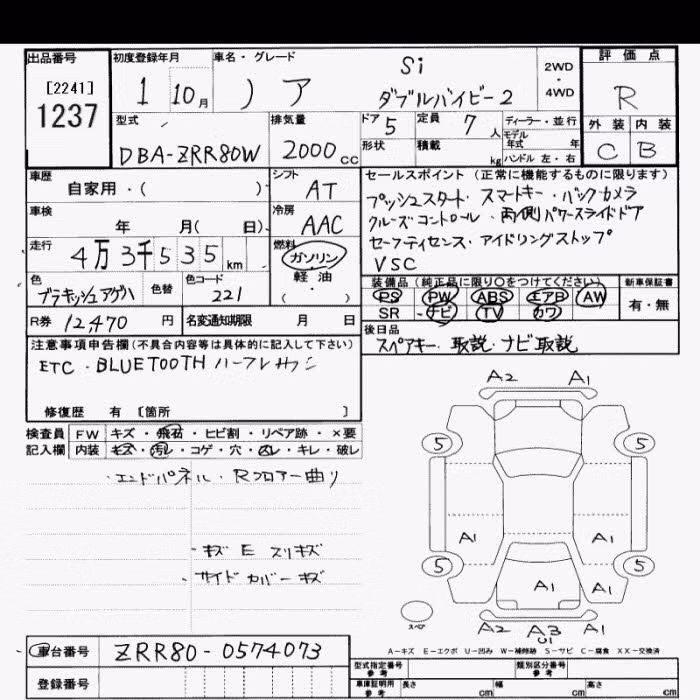 出品番号
[2241]
1237
初度登録年月
1 10月
車名・グレード
ノア
Si
ダブルバイビー2
2WD
・
4WD
評価点
R
外装 内装
C B
型式
DBA-ZRR80W
排気量
2000 cc
ドア 5
定員 7 人
形状
積載 kg
ディーラー・並行
モデル年式 年
ハンドル 左・右
車歴
自家用・( )
シフト
AT
車検
年 月( 日)
冷房
AAC
走行
4万3千535km
燃料
ガソリン
軽・油
( )
色
色替
色コード
221
R券 12,470 円
名変通知期限 月 日
セールスポイント(正常に機能するものに限ります)
プッシュスタート・スマートキー・バックカメラ
クルーズコントロール・両側パワースライドドア
セーフティセンス・アイドリングストップ
VSC
装備品(純正品に限り○をつけてください)
PS PW ABS エアB AW
SR ナビ TV カワ
新車保証書
有・無
後日品
スペアキー・取説・ナビ取説
注意事項申告欄(不具合内容等は具体的に記入して下さい)
ETC・BLUETOOTH
修復歴 有 [箇所 ]
検査員 FW キズ・飛石・ヒビ割・リペア跡・×要
記入欄 内装 キズ・汚レ・コゲ・穴・凹レ・キレ・破レ
・エンドパネル・Rフロアー曲り
・キズE スリキズ
・サイドカバーキズ
A2 A1
5 5
A1 A1
5 5
A1 A1
スペア
A2 A3 A1
U1
A-キズ E-エクボ U-凹み W-補修跡 S-サビ C-腐食 XX-交換済
車台番号 ZRR80-0574073
登録番号
型式指定番号
参考
類別区分番号
参考
車庫証明用
参考
長さ cm 幅 cm 高さ cm